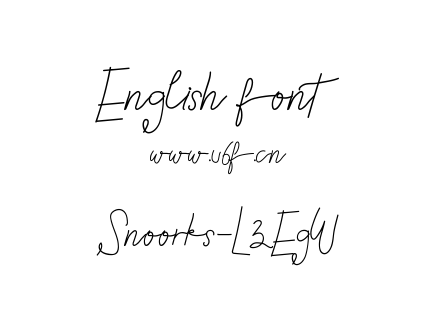 English font
www.u6f.cn
Snoorks-L3EgW